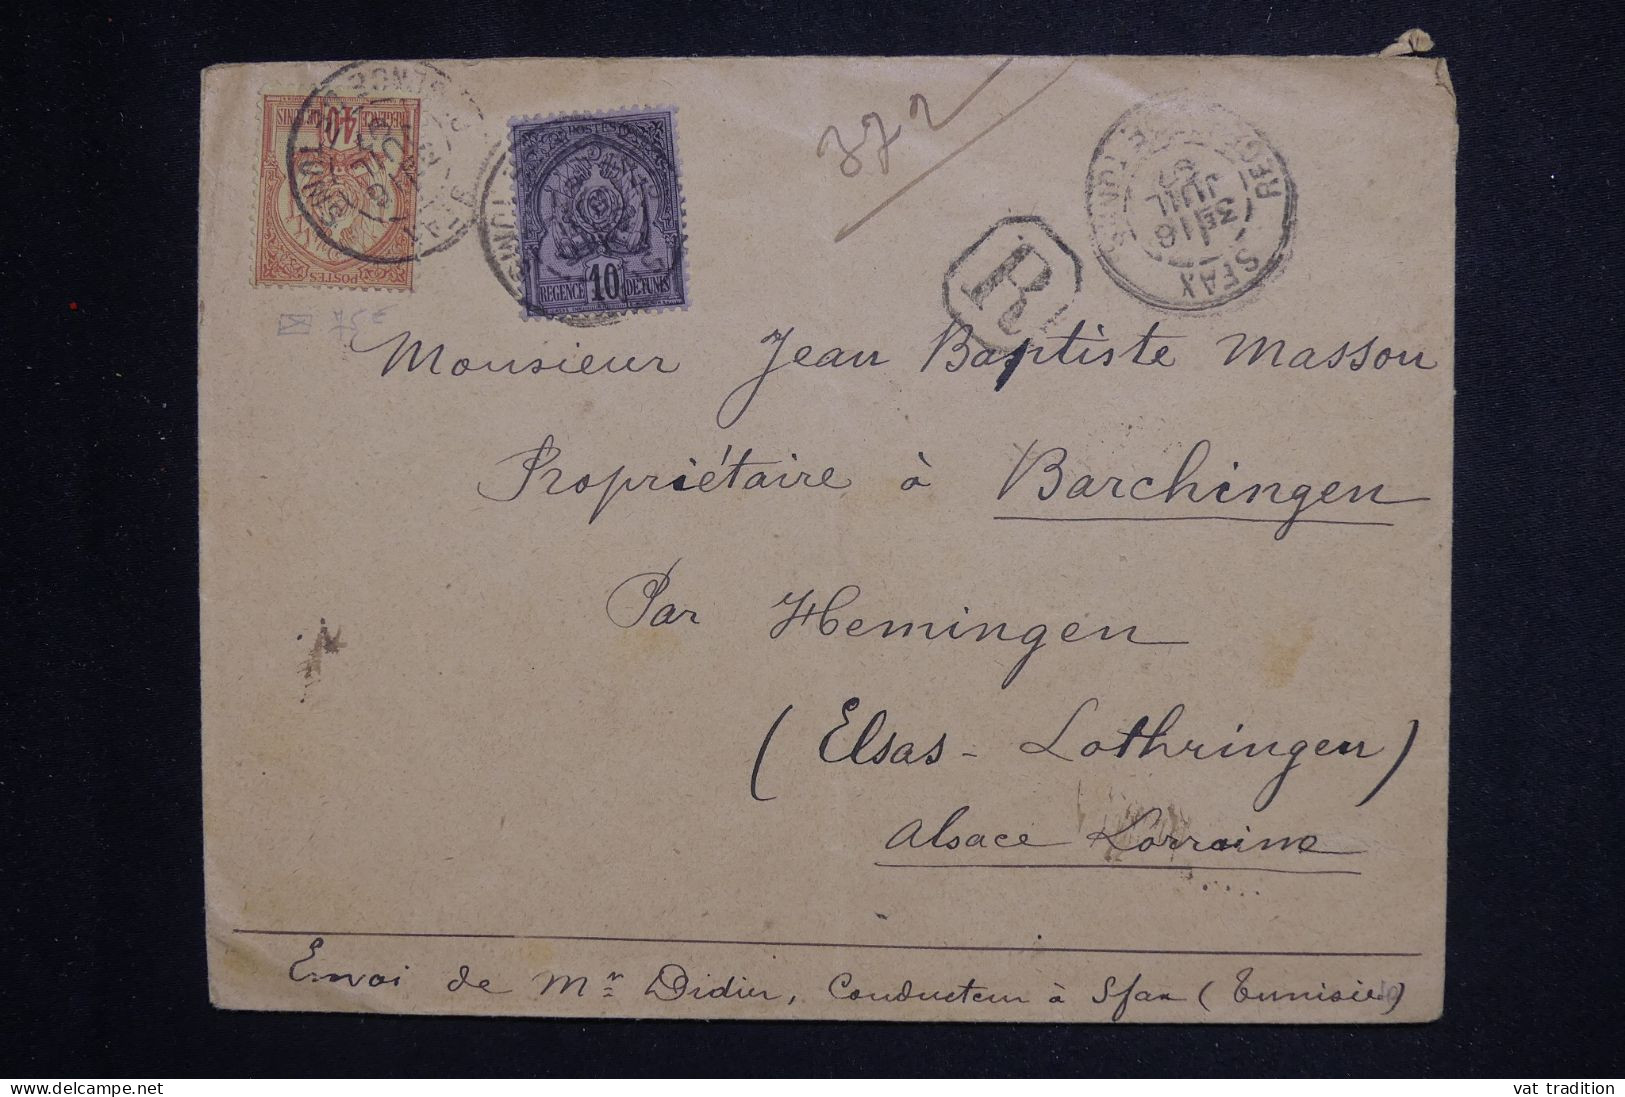 POSTES
40
REGENCE DE TUNIS
POSTES
REGENCE 10 DE TUNIS
372
R
REGENCE DE TUNIS
3E
16
JUIL
SFAX
Monsieur Jean Baptiste Masson
Propriétaire à Barchingen
Par Hemingen
(Elsas - Lothringen)
Alsace Lorraine
Envoi de Mr Didier, Conducteur à Sfax (Tunisie)
vat tradition